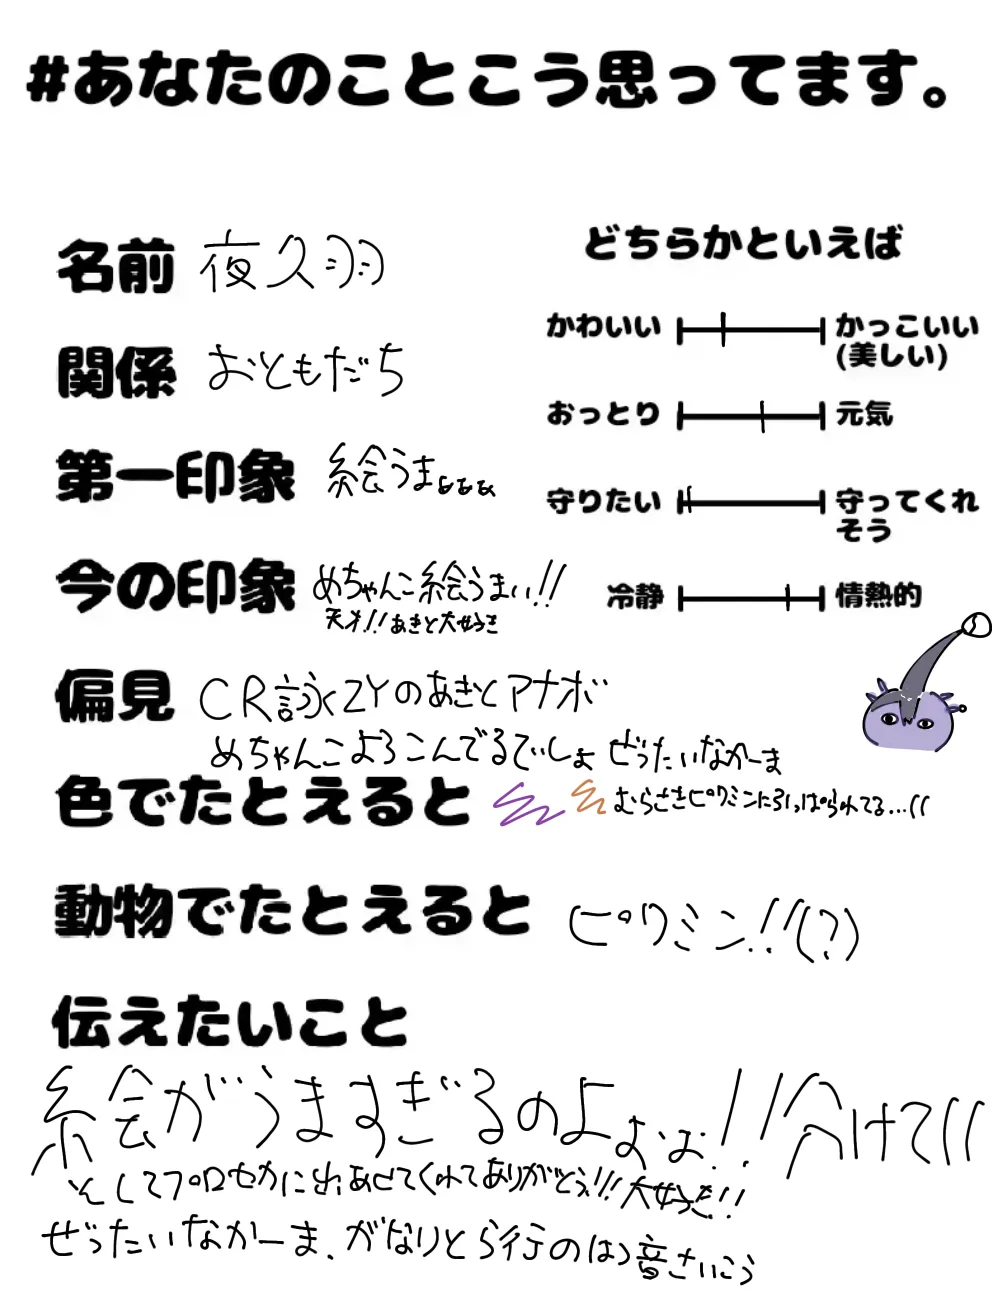 #あなたのことこう思ってます。
名前 夜久羽
関係 おともだち
第一印象 絵うまぁぁぁ
今の印象 めちゃんこ絵うまい!!
天才!!あきと大好き
どちらかといえば
かわいい かっこいい
(美しい)
おっとり 元気
守りたい 守ってくれ
そう
冷静 情熱的
偏見 CR詠ZYのあきとアナボ
めちゃんこよろこんでるでいしょ ぜったいなかーま
色でたとえると むらさきピクミンに引っぱられてる...((
動物でたとえると ピクミン!!(?)
伝えたいこと
絵がうますぎるのよぉぉ!!分けて((
そしてプロセカに出あせてくれてありがとう!!!大好き!!
ぜったいなかーま、がなりとら行のはつ音さいこう